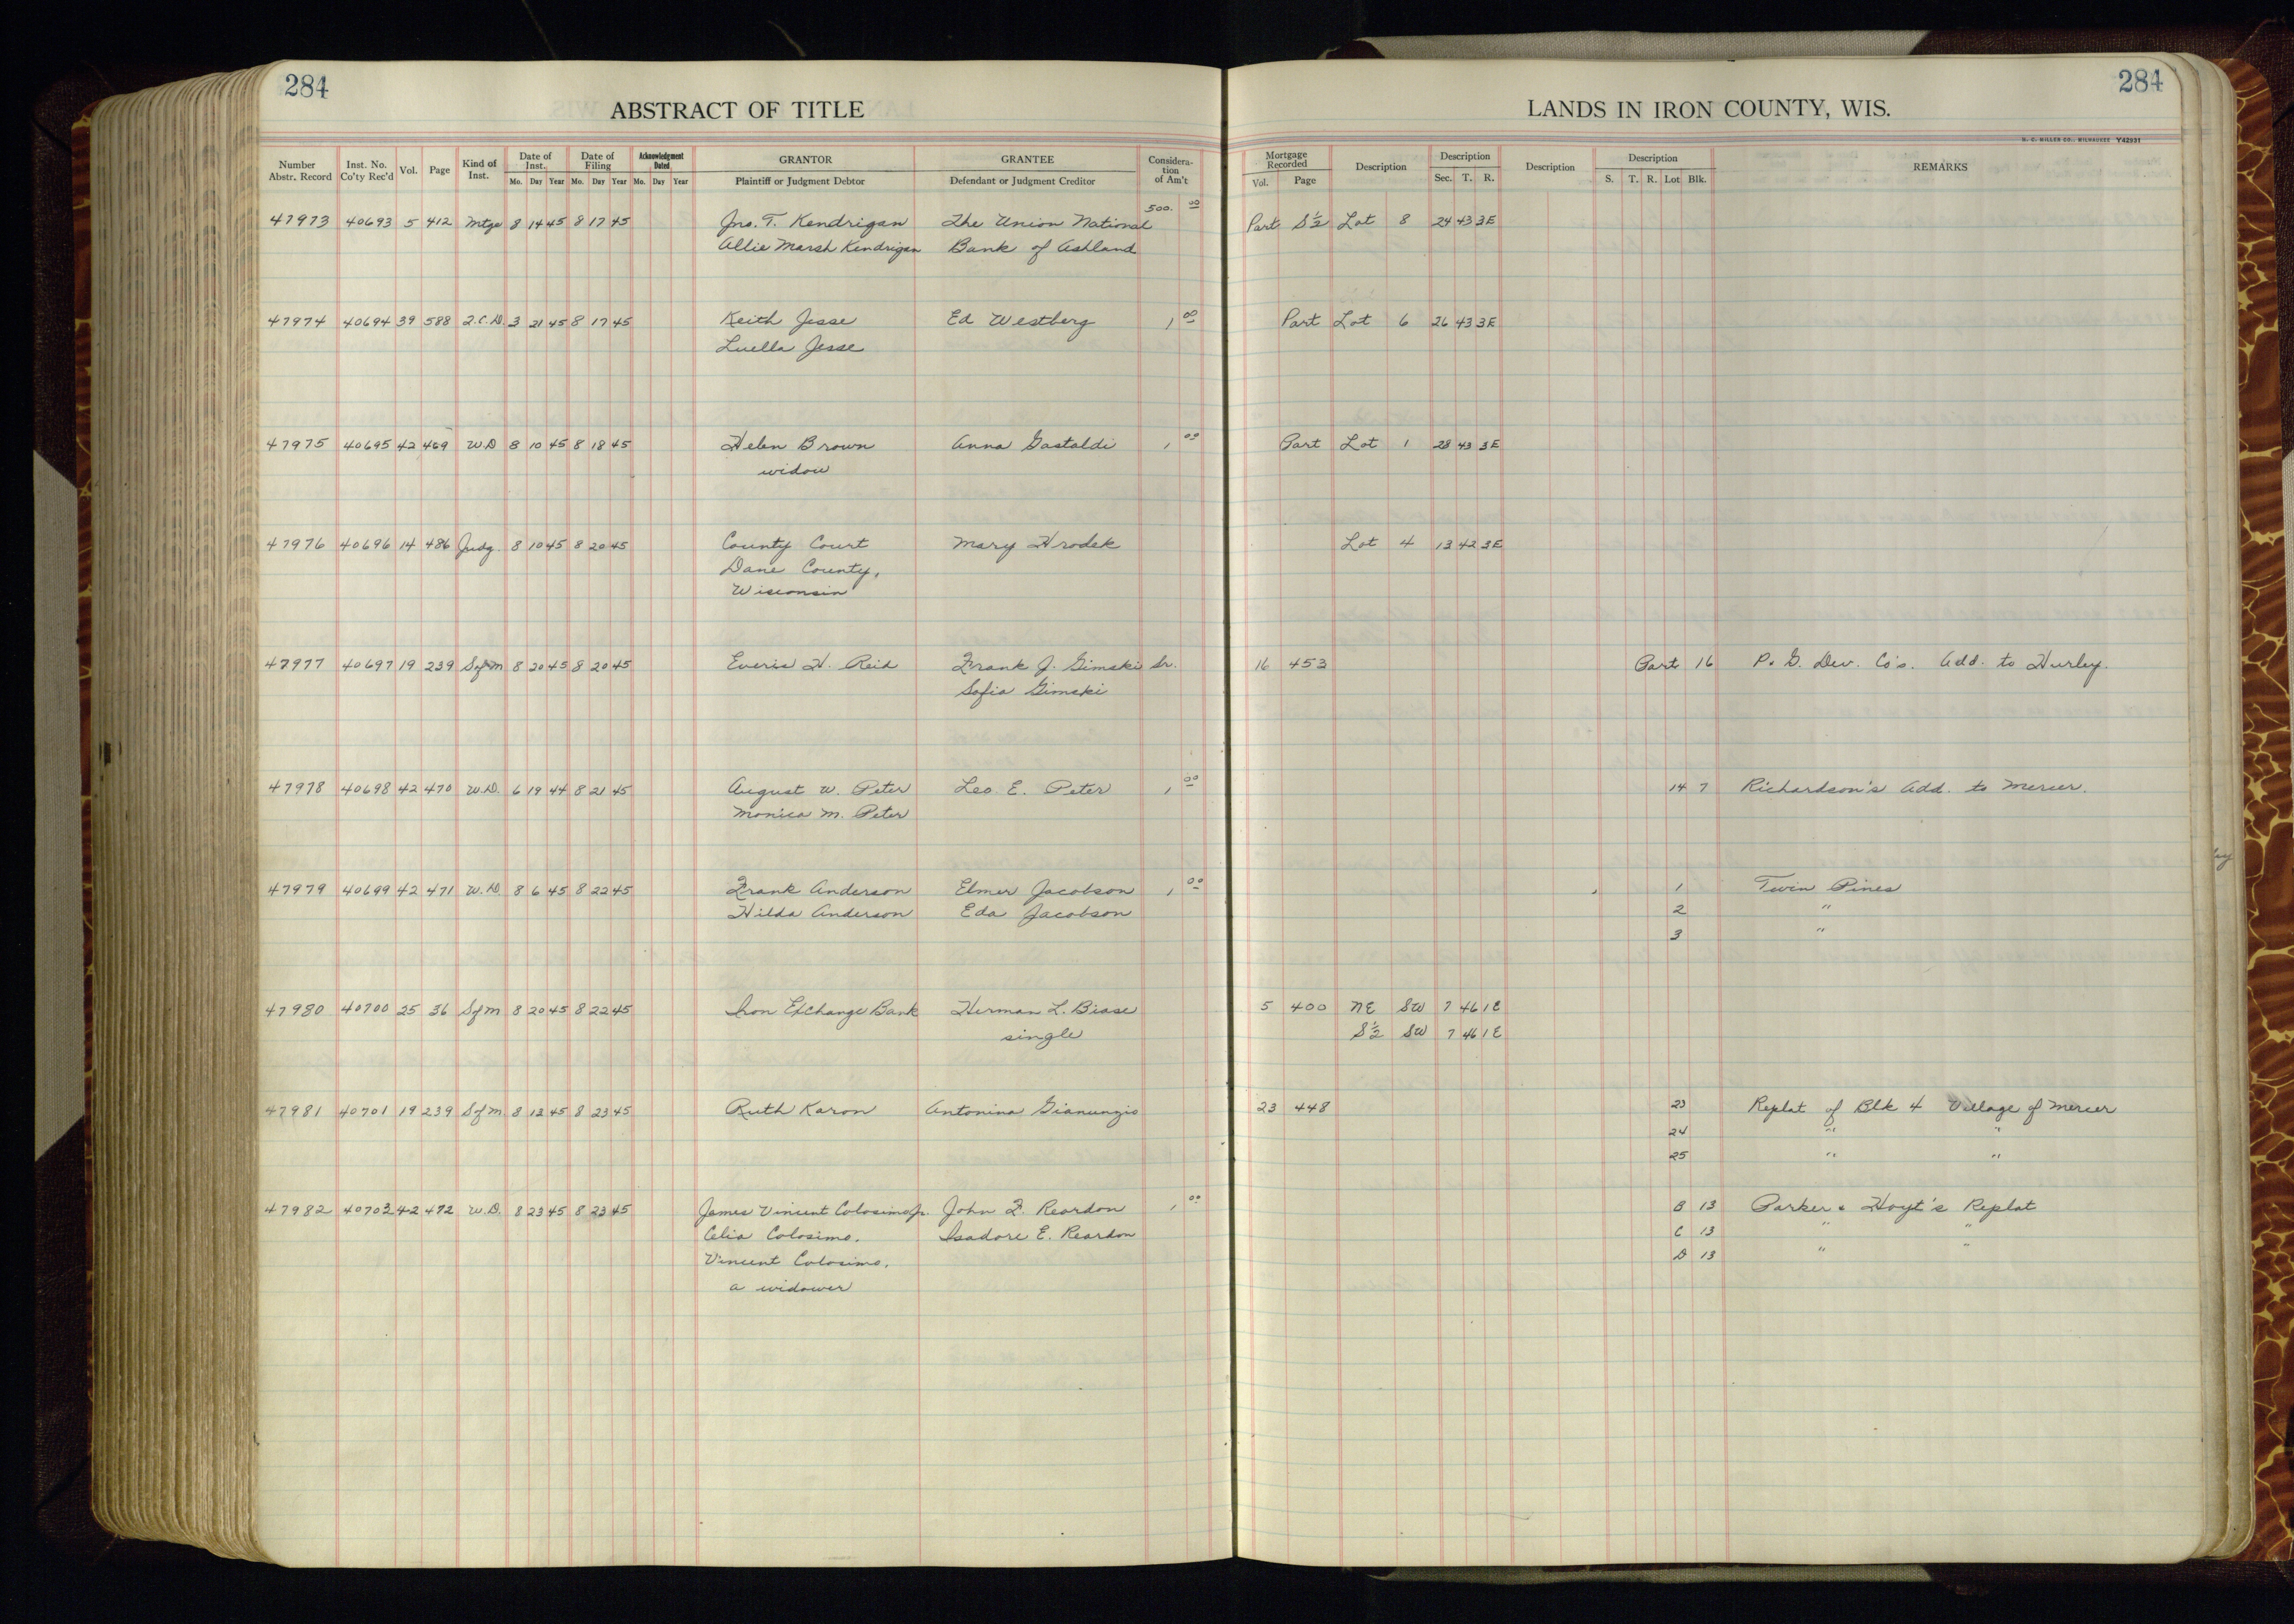 284
284
ABSTRACT OF TITLE
LANDS IN IRON COUNTY, WIS.
H. C. MILLER CO., MILWAUKEE Y42931
Number Abstr. Record Inst. No. Co'ty Rec'd Vol. Page Kind of Inst. Date of Inst. Mo. Day Year Date of Filing Mo. Day Year Acknowledgment Dated Mo. Day Year GRANTOR Plaintiff or Judgment Debtor GRANTEE Defendant or Judgment Creditor Considera-tion of Am't Mortgage Recorded Vol. Page Description Description Sec. T. R. Description Description S. T. R. Lot Blk. REMARKS
47973 40693 5 412 Mtge 8 14 45 8 17 45 Jno. T. Kendrigan The Union National 500. 00 Part S½ Lot 8 24 43 3E
Allie Marsh Kendrigan Bank of Ashland
47974 40694 39 588 Q.C.D. 3 21 45 8 17 45 Keith Jesse Ed Westberg 1 00 Part Lot 6 26 43 3E
Luella Jesse
47975 40695 42 469 W.D 8 10 45 8 18 45 Helen Brown Anna Gastaldi 1 00 Part Lot 1 28 43 3E
widow
47976 40696 14 486 Judg. 8 10 45 8 20 45 County Court Mary Hrodek Lot 4 13 42 3E
Dane County,
Wisconsin
47977 40697 19 239 Sfm 8 20 45 8 20 45 Everis H. Reid Frank J. Gimski Sr. 16 453 Part 16 P. G. Dev. Co's. Add. to Hurley.
Sofia Gimski
47978 40698 42 470 W.D. 6 19 44 8 21 45 August W. Peter Leo E. Peter 1 00 14 7 Richardson's Add. to Mercer.
Monica M. Peter
47979 40699 42 471 W.D 8 6 45 8 22 45 Frank Anderson Elmer Jacobson 1 00 1 Twin Pines
Hilda Anderson Eda Jacobson 2 "
3 "
47980 40700 25 36 Sfm 8 20 45 8 22 45 Iron Exchange Bank Herman L. Biase 5 400 NE SW 7 46 1E
single S½ SW 7 46 1E
47981 40701 19 239 Sfm. 8 12 45 8 23 45 Ruth Karon Antonina Gianunzio 23 448 23 Replat of Blk 4 Village of Mercer
24 " "
25 " "
47982 40703 42 472 W.D. 8 23 45 8 23 45 James Vincent Colosimo Jr. John F. Reardon 1 00 B 13 Parker & Hoyt's Replat
Celia Colosimo, Isadore E. Reardon C 13 " "
Vincent Colosimo, D 13 " "
a widower